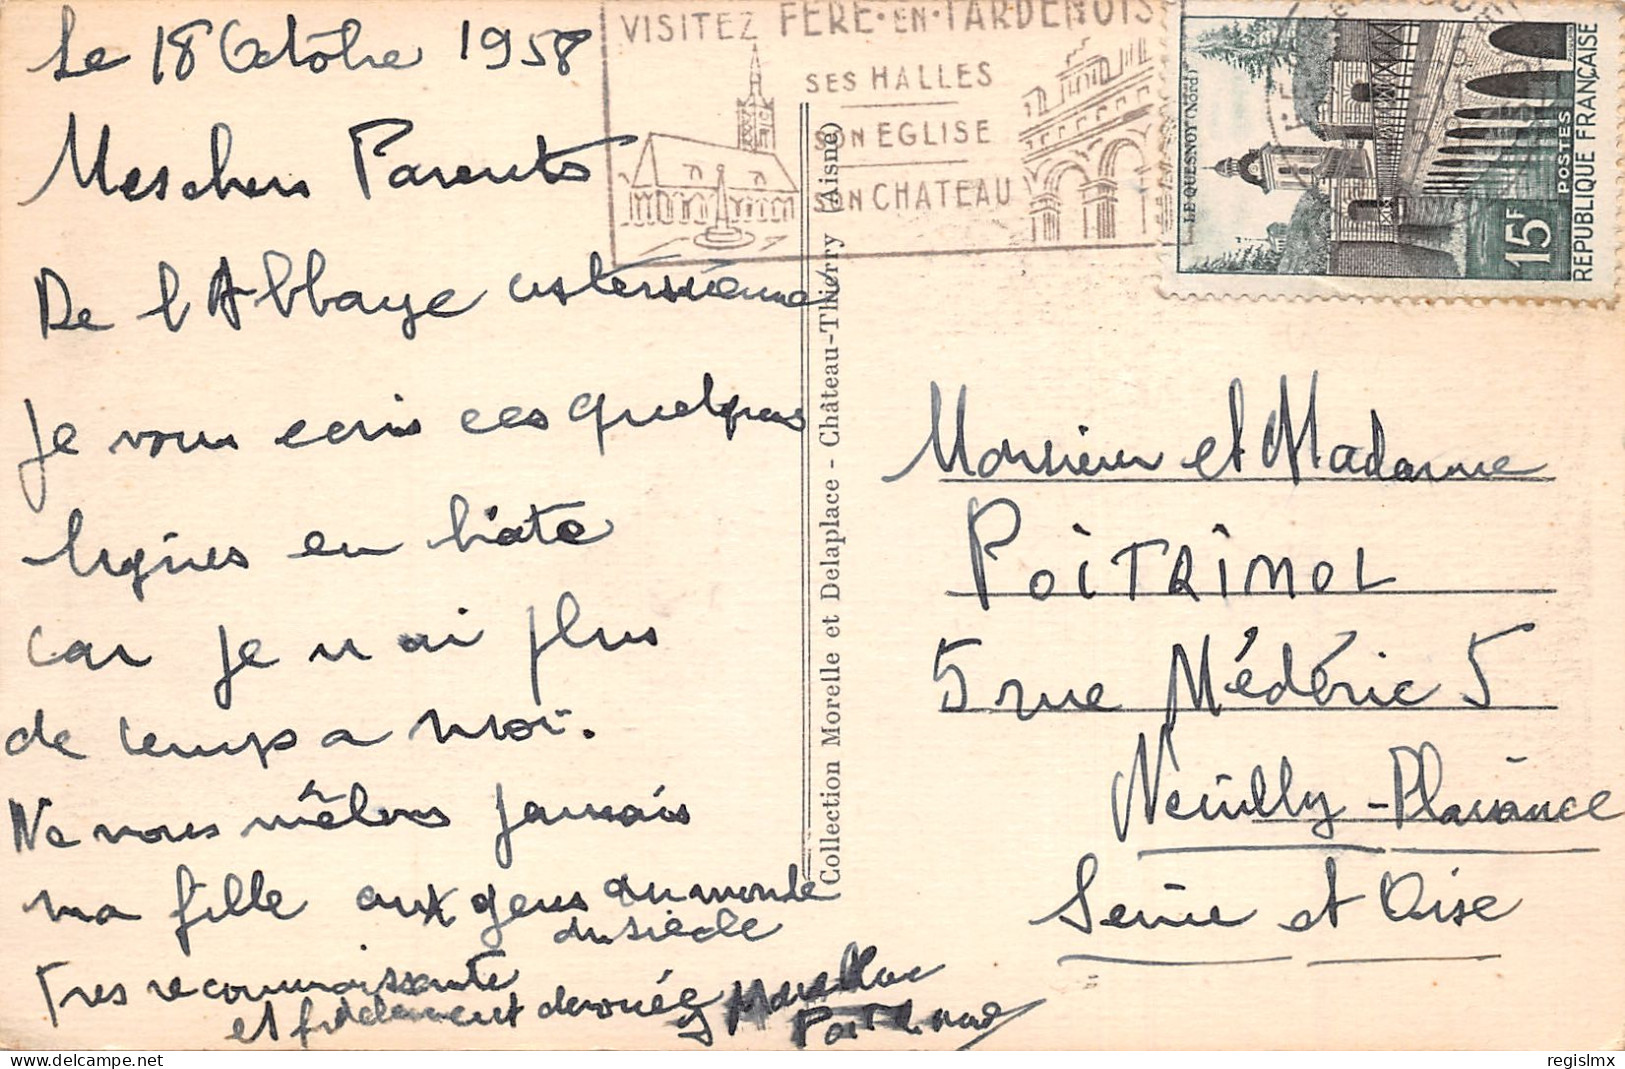 Le 18 Octobre 1958
Meschers Parents
De l'Abbaye cistersienne
Je vous ecris ces quelques
lignes en hâte
car je n ai plus
de temps a moi.
Ne vous mêlons jamais
ma fille aux gens du monde
du siècle
Tres reconnaissante
et fidelement dévouée
VISITEZ FERE·EN·TARDENOIS
SES HALLES
SON EGLISE
SON CHATEAU
LE QUESNOY (Nord)
15F
POSTES
REPUBLIQUE FRANÇAISE
Collection Morelle et Delaplace - Château-Thierry (Aisne)
Monsieur et Madame
POITRIMOL
5 rue Médéric 5
Neuilly-Plaisance
Seine et Oise
regislmx